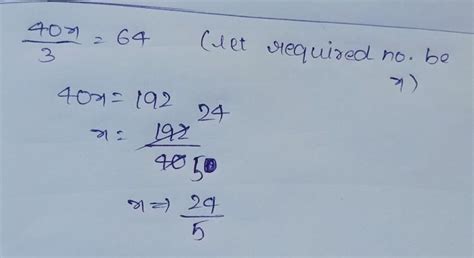 40x/3 = 64 (let required no. be x)
40x = 192
x = 192/40 24/5
x ⇒ 24/5